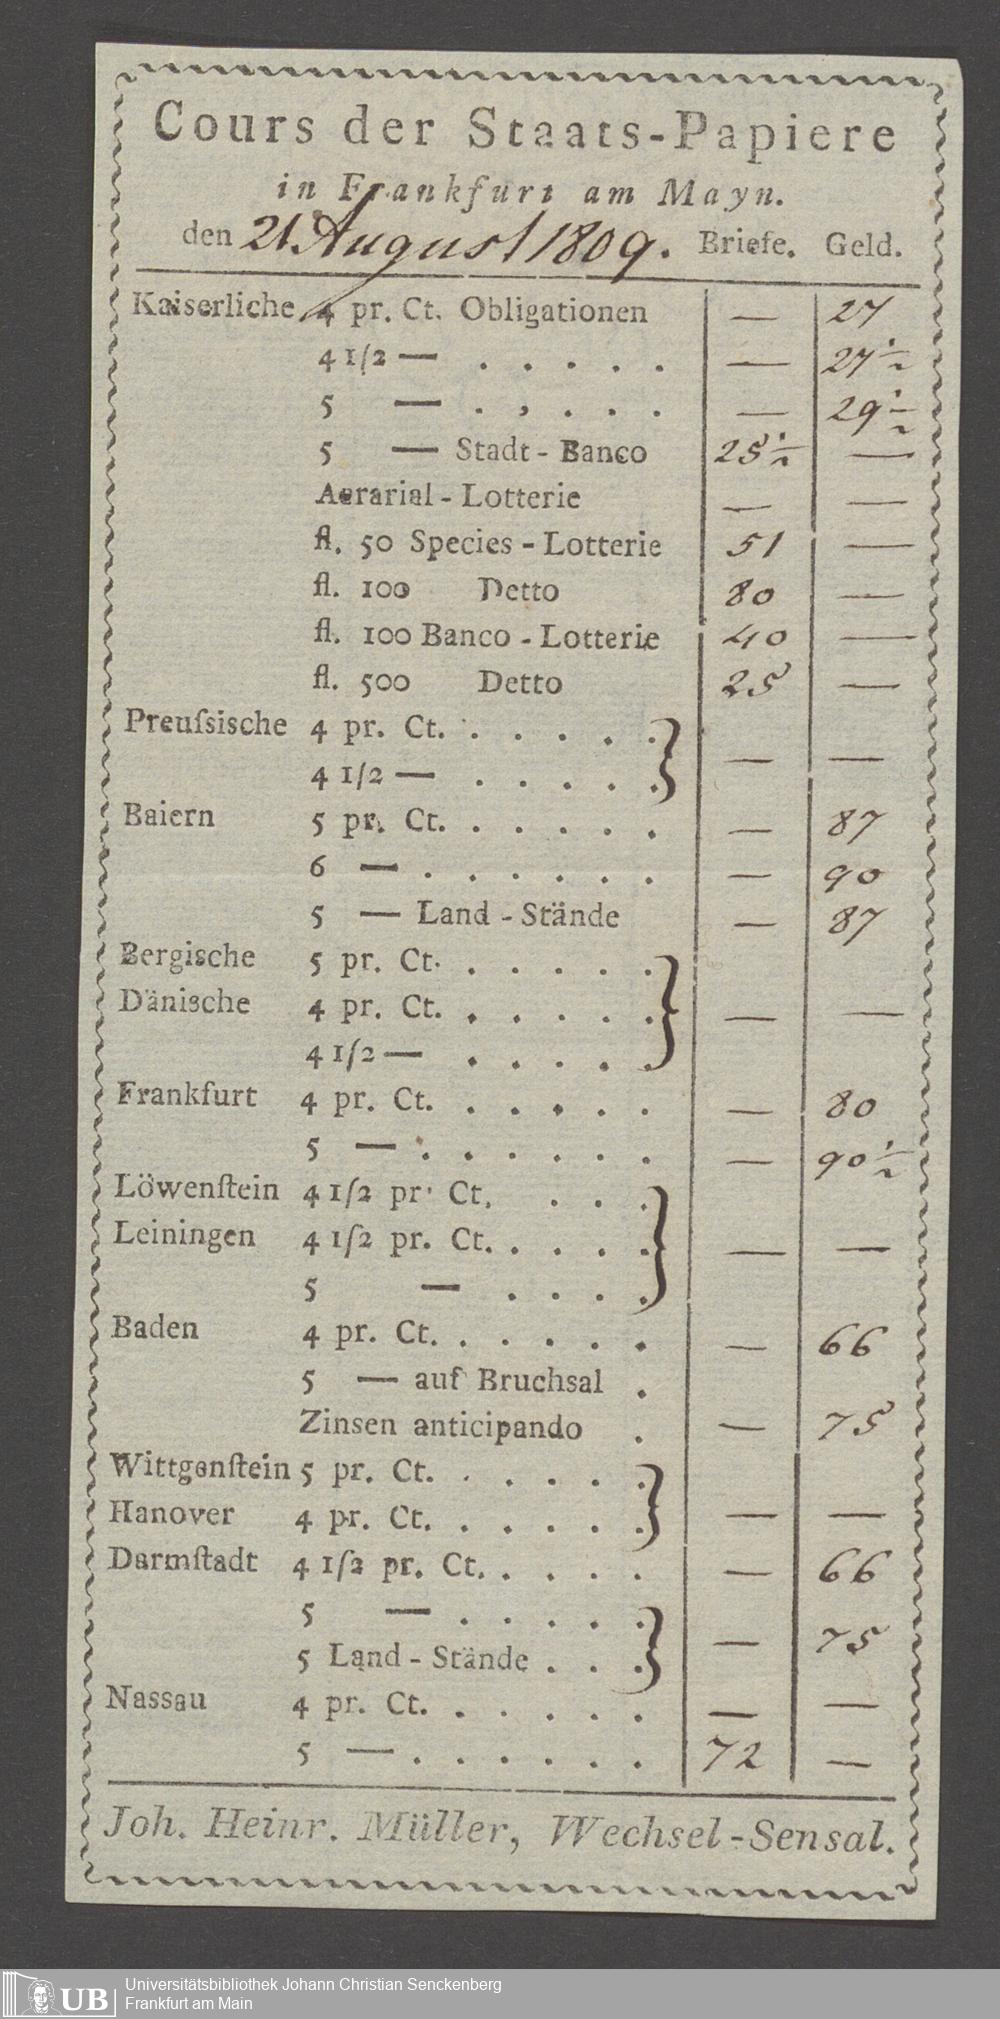 Cours der Staats-Papiere
in Frankfurt am Mayn.
den 21 August 1809. Briefe. Geld.
Kaiserliche 4 pr. Ct. Obligationen — 27
4 1/2 — . . . . . — 27 1/2
5 — . . . . . — 29 1/2
5 — Stadt-Banco 25 1/2 —
Aerarial-Lotterie — —
fl. 50 Species-Lotterie 51 —
fl. 100 Detto 80 —
fl. 100 Banco-Lotterie 40 —
fl. 500 Detto 25 —
Preuſsische 4 pr. Ct. . . . . .
4 1/2 — . . . . . } — —
Baiern 5 pr. Ct. . . . . . — 87
6 — . . . . . . — 90
5 — Land-Stände — 87
Bergische 5 pr. Ct. . . . . .
Dänische 4 pr. Ct. . . . . . } — —
4 1/2 — . . . . .
Frankfurt 4 pr. Ct. . . . . . — 80
5 — . . . . . . — 90 1/2
Löwenſtein 4 1/2 pr. Ct. . . .
Leiningen 4 1/2 pr. Ct. . . . . } — —
5 — . . . .
Baden 4 pr. Ct. . . . . . — 66
5 — auf Bruchsal .
Zinsen anticipando . — 75
Wittgenſtein 5 pr. Ct. . . . . .
Hanover 4 pr. Ct. . . . . . } — —
Darmſtadt 4 1/2 pr. Ct. . . . . — 66
5 — . . . . .
5 Land-Stände . . . } — 75
Nassau 4 pr. Ct. . . . . . — —
5 — . . . . . . 72 —
Joh. Heinr. Müller, Wechsel-Sensal.
UB
Universitätsbibliothek Johann Christian Senckenberg
Frankfurt am Main